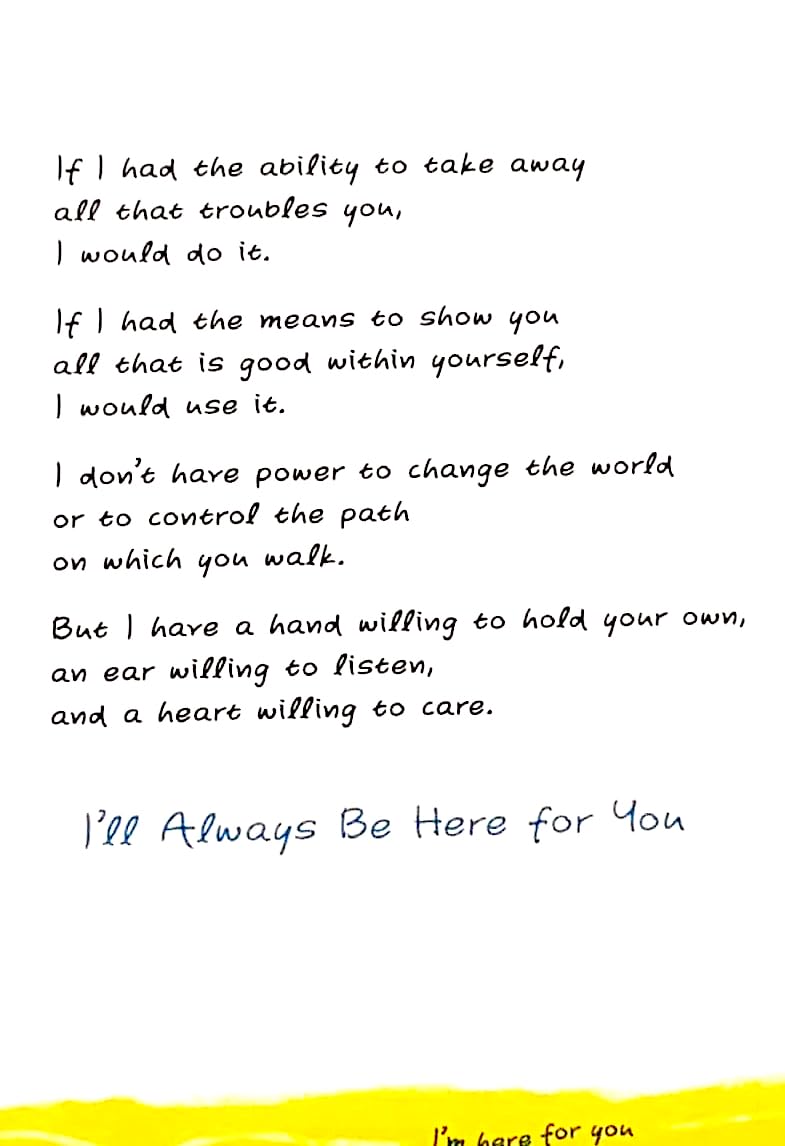 If I had the ability to take away
all that troubles you,
I would do it.
If I had the means to show you
all that is good within yourself,
I would use it.
I don't have power to change the world
or to control the path
on which you walk.
But I have a hand willing to hold your own,
an ear willing to listen,
and a heart willing to care.
I'll Always Be Here for You
I'm here for you